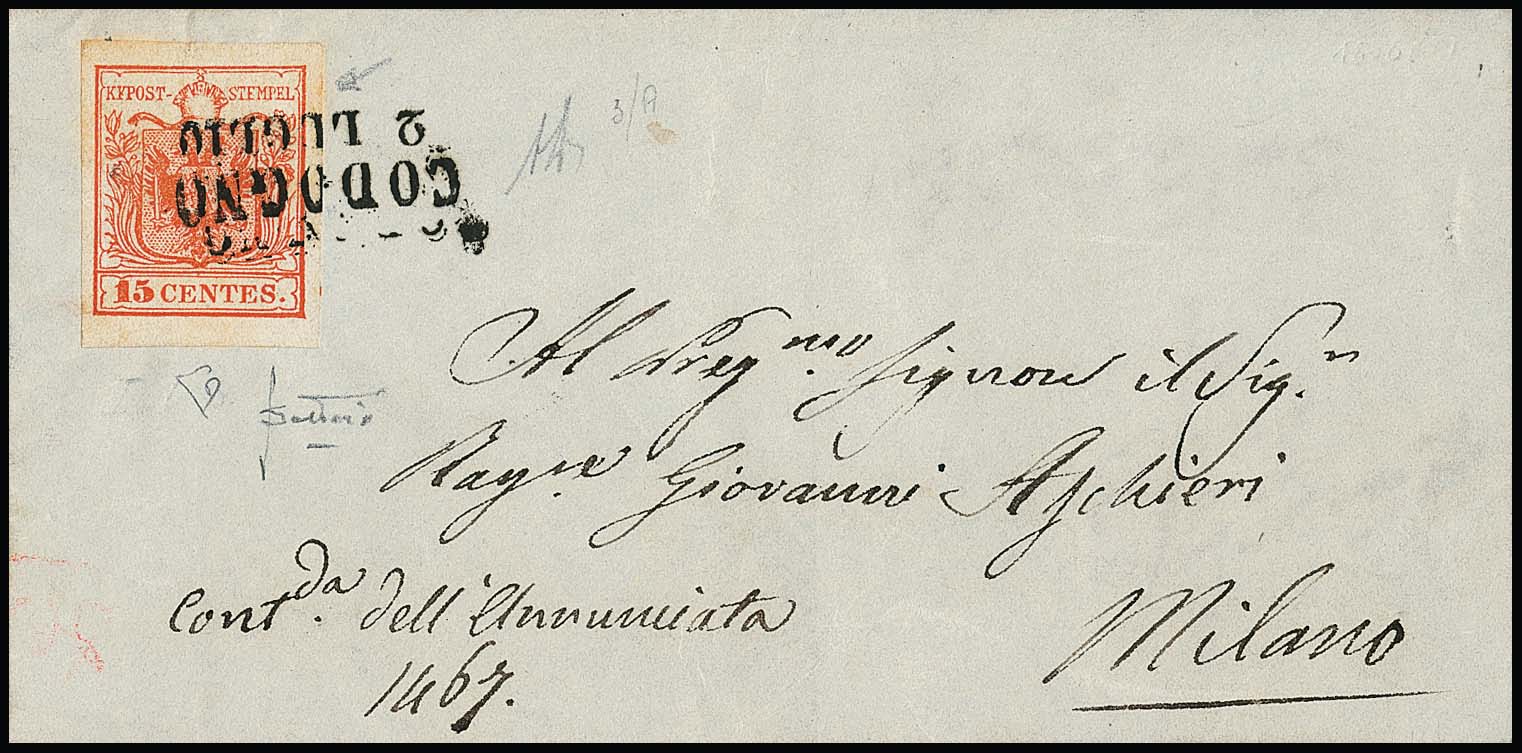 KKPOST-STEMPEL
15 CENTES.
CODOGNO
2 LUGLIO
3/A
Al Preg.mo Signore il Sig.n
Rag.re Giovanni Aschieri
Milano
Cont.da dell'Annunciata
1467.